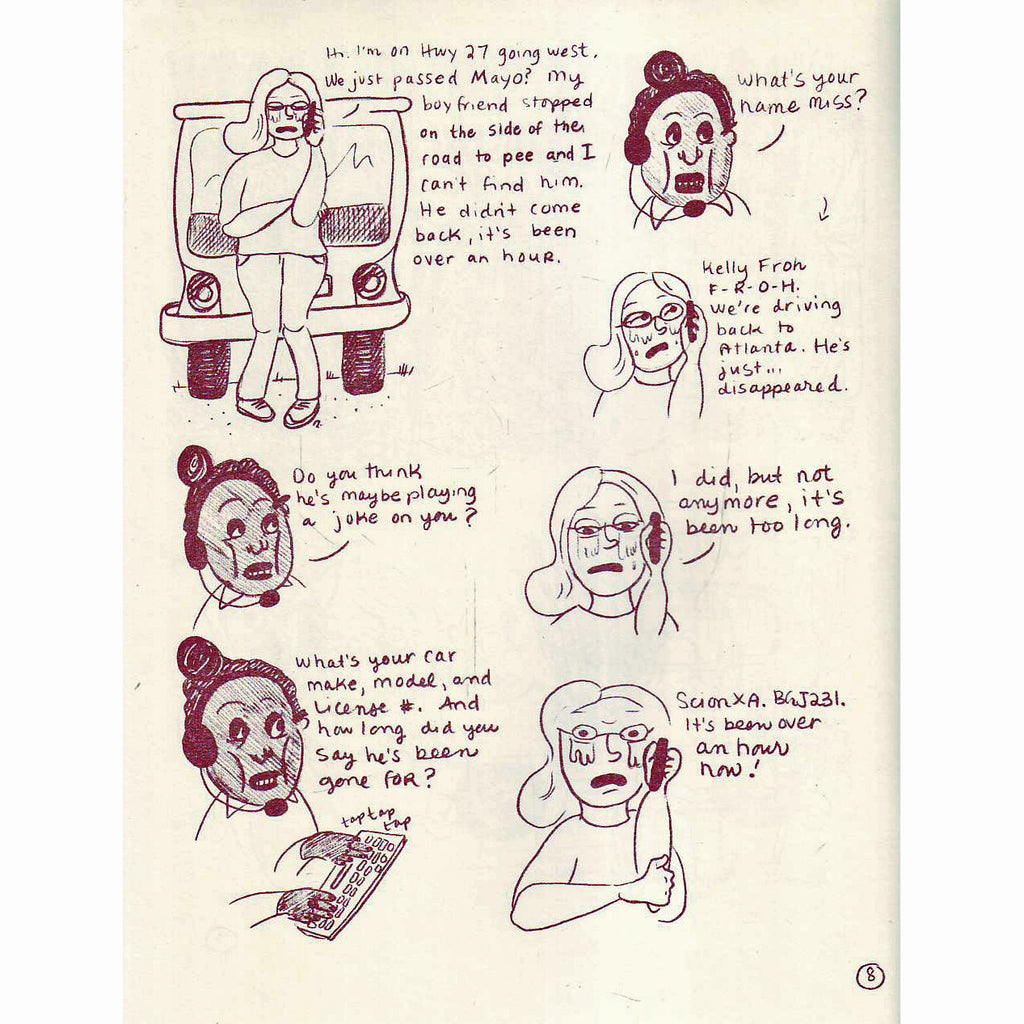 Hi. I'm on Hwy 27 going west.
We just passed Mayo? My
boyfriend stopped
on the side of the
road to pee and I
can't find him.
He didn't come
back, it's been
over an hour.
What's your
name miss?
Kelly Froh
F-R-O-H.
We're driving
back to
Atlanta. He's
just...
disappeared.
Do you think
he's maybe playing
a joke on you?
I did, but not
anymore, it's
been too long.
What's your car
make, model, and
License #. And
how long did you
say he's been
gone for?
tap tap
tap
Scion XA. BGJ231.
It's been over
an hour
now!
8